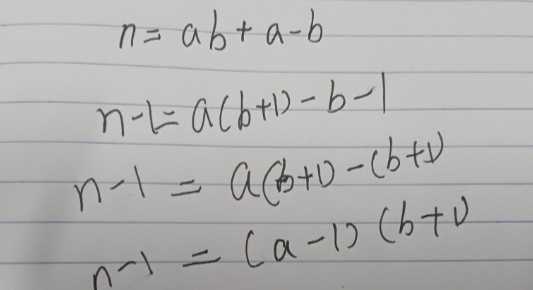 n = ab + a - b
n - 1 = a(b+1) - b - 1
n - 1 = a(b+1) - (b+1)
n - 1 = (a - 1) (b+1)